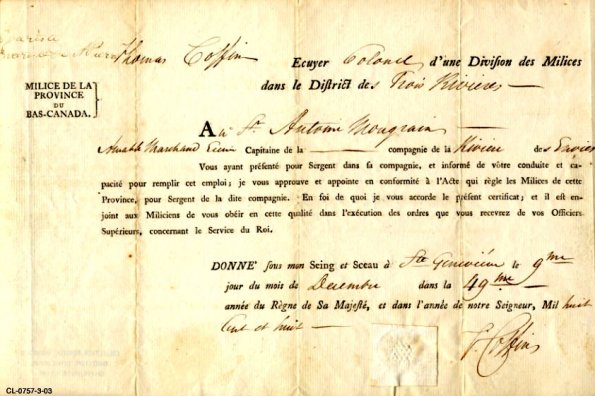 Thomas Coffin Ecuyer Colonel d'une Division des Milices
dans le District des Trois Rivieres
MILICE DE LA
PROVINCE
DU
BAS-CANADA.
A Sr. Antoine Mongrain
Amable Marchand Ecuier Capitaine de la compagnie de la Riviere des Envies
Vous ayant présenté pour Sergent dans sa compagnie, et informé de vôtre conduite et ca-
pacité pour remplir cet emploi; je vous approuve et appointe en conformité à l'Acte qui règle les Milices de cette
Province, pour Sergent de la dite compagnie. En foi de quoi je vous accorde le présent certificat; et il est en-
joint aux Miliciens de vous obéir en cette qualité dans l'exécution des ordres que vous recevrez de vos Officiers
Supérieurs, concernant le Service du Roi.
DONNE' sous mon Seing et Sceau à Ste Genevieve le 9me
jour du mois de Decembre dans la 49me
année du Règne de Sa Majesté, et dans l'année de notre Seigneur, Mil huit
Cent et huit
T. Coffin
CL-0757-3-03